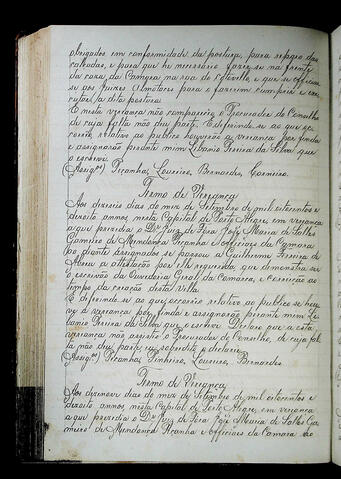 obrigados em conformidade da postura, para reparo das
calçadas, e para que he necessario fazer-se na frente
da casa da Camara na rua do
se aos juizes Almotaces para o fazerem cumprir e exe
cutar a dita postura.
E nesta vereança não compareceo o Procurador do Conselho
de cuja falta não deu parte. E deferindo-se ao que oc
correo relativo ao publico houverão a vereança por finda
e assignarão perante mim Libanio Pereira da Silva que
o escrevi.
(Assig.os) Peçanha, Loureiro, Bernardes, Gameiro.
Termo de Vereança
Aos dezeseis dias do mez de Setembro de mil oitocentos e
dezoito annos nesta Capital de Porto Alegre, em vereança
a que presidio o Dr. Juiz de Fora José Maria de Salles
Gameiro de Mendonça Peçanha e officiaes da Camara
ao diante assignados se passou a Guilherme Ferreira de
Abreu a attestação por elle requerida que demonstra ser
o escrivão da Ouvidoria Geral da Comarca, e correição ao
tempo da creação desta Villa.
E deferindo se ao que occorreo relativo ao publico se hou
ve a vereança por finda e assignarão perante mim Li
banio Pereira da Silva que o escrevi. Declaro que a esta
vereança não assistio o Procurador do Conselho, de cuja fal
ta não deu parte eu sobredito o declarei
(Assig.os) Peçanha, Pinheiro, Loureiro, Bernardes
Termo de Vereança
Aos dezenove dias do mez de Setembro de mil oitocentos e
dezoito annos nesta Capital de Porto Alegre, em vereança
a que presidio o Dr. Juiz de Fora José Maria de Salles Ga
meiro de Mendonça Peçanha e officiaes da Camara ao